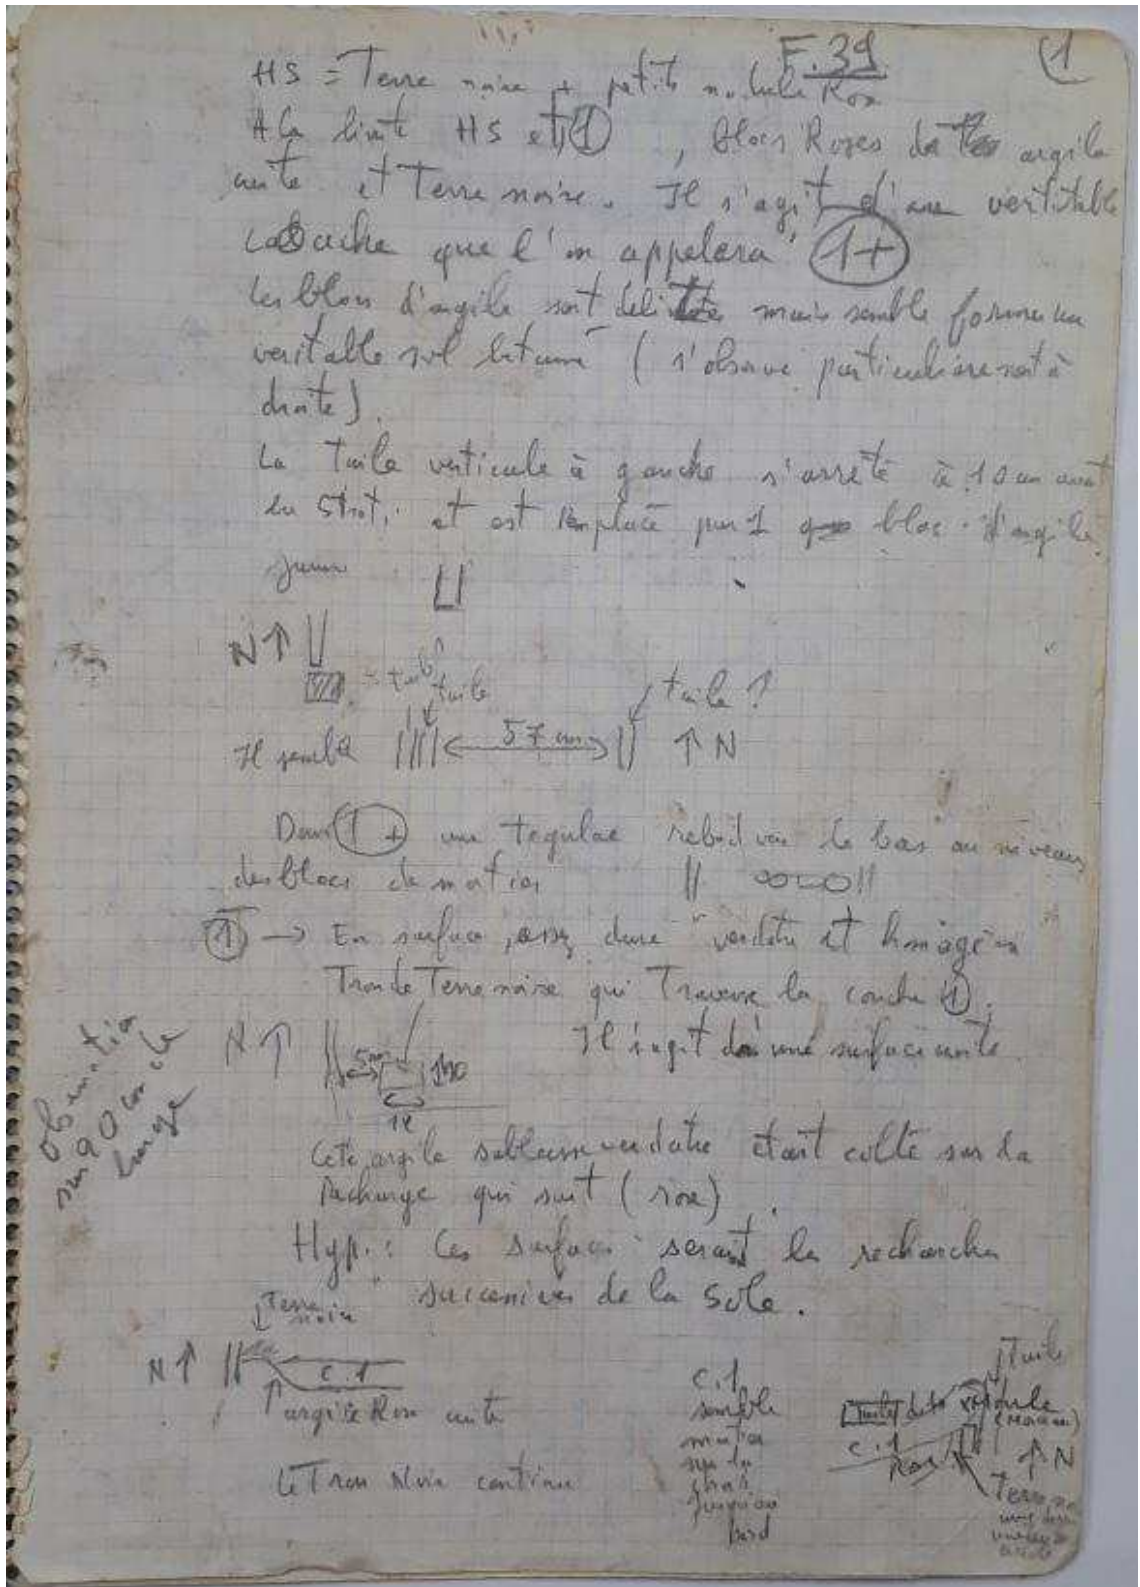 F.39
1
HS = Terre noire + petits nodule Rose
A la limite HS et 1, blocs Roses de argile
cuite et Terre noire. Il s'agit d'une veritable
couche que l'on appelera 1+
Les blocs d'argile sont mais semble former un
veritable sol ( s'observe particulierement à
droite).
La tuile verticale à gauche s'arrete à 10 cm avant
la Strat. et est remplacé par 1 bloc d'argile
jaune
N
tuile
tuile ?
Il semble
57 cm
N
Dans 1+ une tegulae rebord vers le bas au niveau
des blocs de mortier
1 → En surface, assez dure verdatre et homogène
Trou de Terre noire qui Traverse la couche 1.
N
Il s'agit d'une surface cuite.
5
Observation
sur 90 cm de
large
Cette argile sableuse verdatre était collé sur la
recharge qui suit (rose).
Hyp. : Ces surfaces seraient les recharches
successives de la Sole.
Terre
noire
N
c.1
argile Rose cuite
c.1
semble
jusqu'au
bord
Tuile
c.1
Rose
N
Terre
Le Trou Noir continue